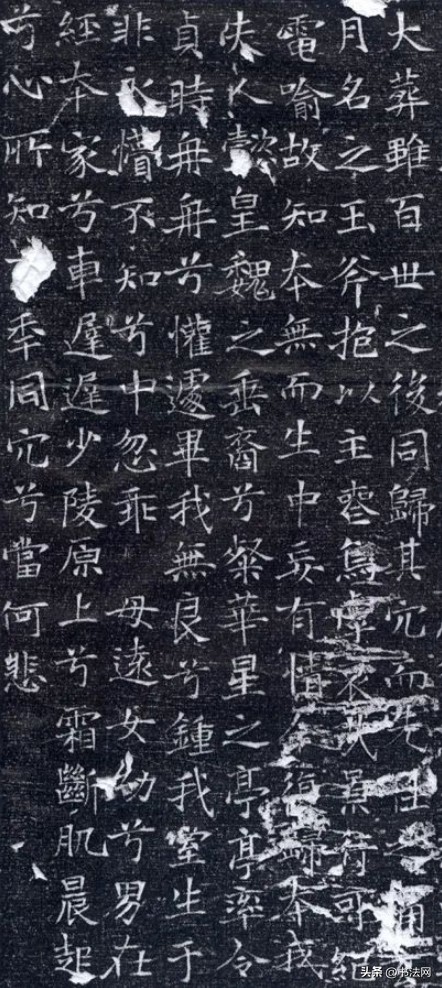 大葬雖百世之後同歸其穴而先往之
月名之玉斧抱以主喪烏虖哉景行可紀
電喻故知本無而生中妄有情復歸本我
夫人懿皇魏之垂裔兮粲華星之亭亭率令
貞時冉冉兮懽遽畢我無良兮鍾我室生于
非永懵不知兮中忽乖母遠女幼兮男在
經本家兮車遲遲少陵原上兮霜斷肌晨起
兮心所知年同穴兮當何悲
头条 @书法网